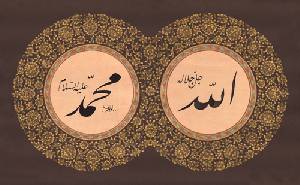 الله
جل جلاله
محمد
عليه السلام